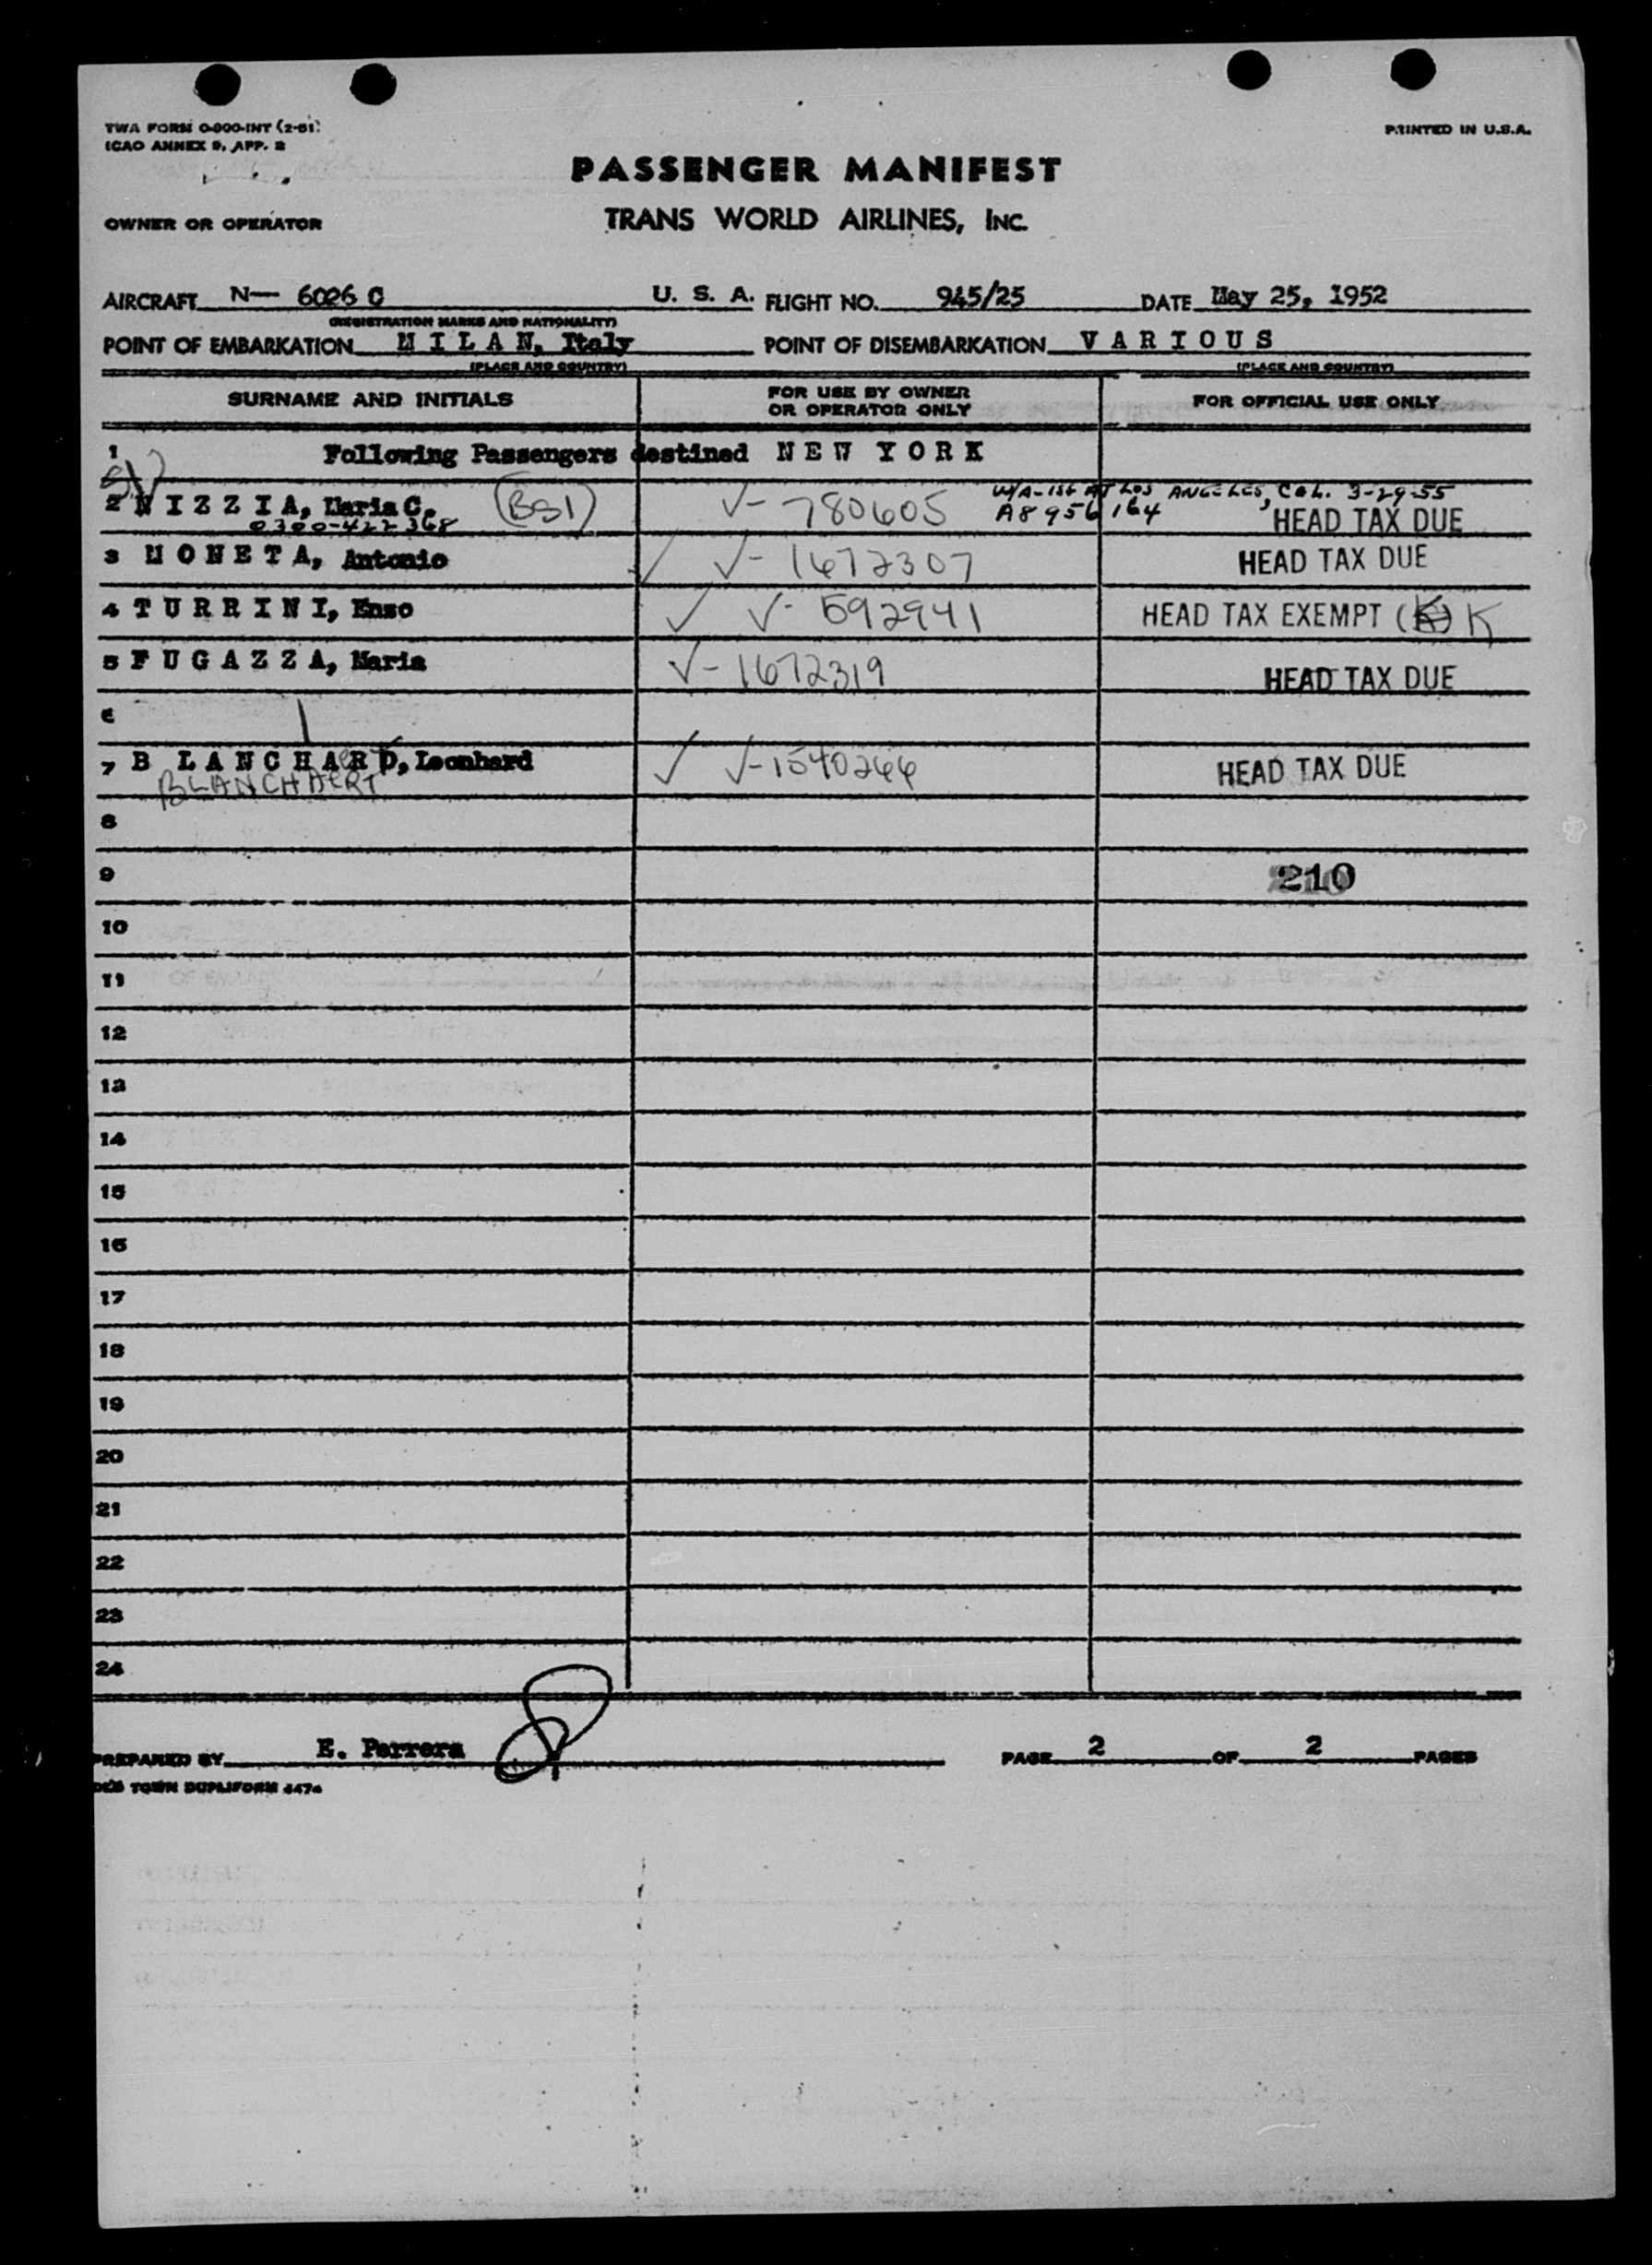 TWA FORM 0-900-INT (2-51)
ICAO ANNEX 9, APP. 2
PRINTED IN U.S.A.
PASSENGER MANIFEST
OWNER OR OPERATOR
TRANS WORLD AIRLINES, INC.
AIRCRAFT N— 6026 C U. S. A. FLIGHT NO. 945/25 DATE May 25, 1952
(REGISTRATION MARKS AND NATIONALITY)
POINT OF EMBARKATION M I L A N, Italy POINT OF DISEMBARKATION V A R I O U S
(PLACE AND COUNTRY) (PLACE AND COUNTRY)
SURNAME AND INITIALS FOR USE BY OWNER OR OPERATOR ONLY FOR OFFICIAL USE ONLY
1 Following Passengers destined N E W Y O R K
W/A-1st AT LOS ANGELES, CAL. 3-29-55
2 N I Z Z I A, Maria C. (BSI) V- 780605 A8 956 164 HEAD TAX DUE
0300-422 368
3 M O N E T A, Antonio V- 1672307 HEAD TAX DUE
4 T U R R I N I, Enzo V- 592941 HEAD TAX EXEMPT (K) K
5 F U G A Z Z A, Maria V- 1672319 HEAD TAX DUE
6
7 B L A N C H A R D, Leonhard V-1540266 HEAD TAX DUE
BLANCHAERT
8
9 210
10
11
12
13
14
15
16
17
18
19
20
21
22
23
24
PREPARED BY E. Ferrera PAGE 2 OF 2 PAGES